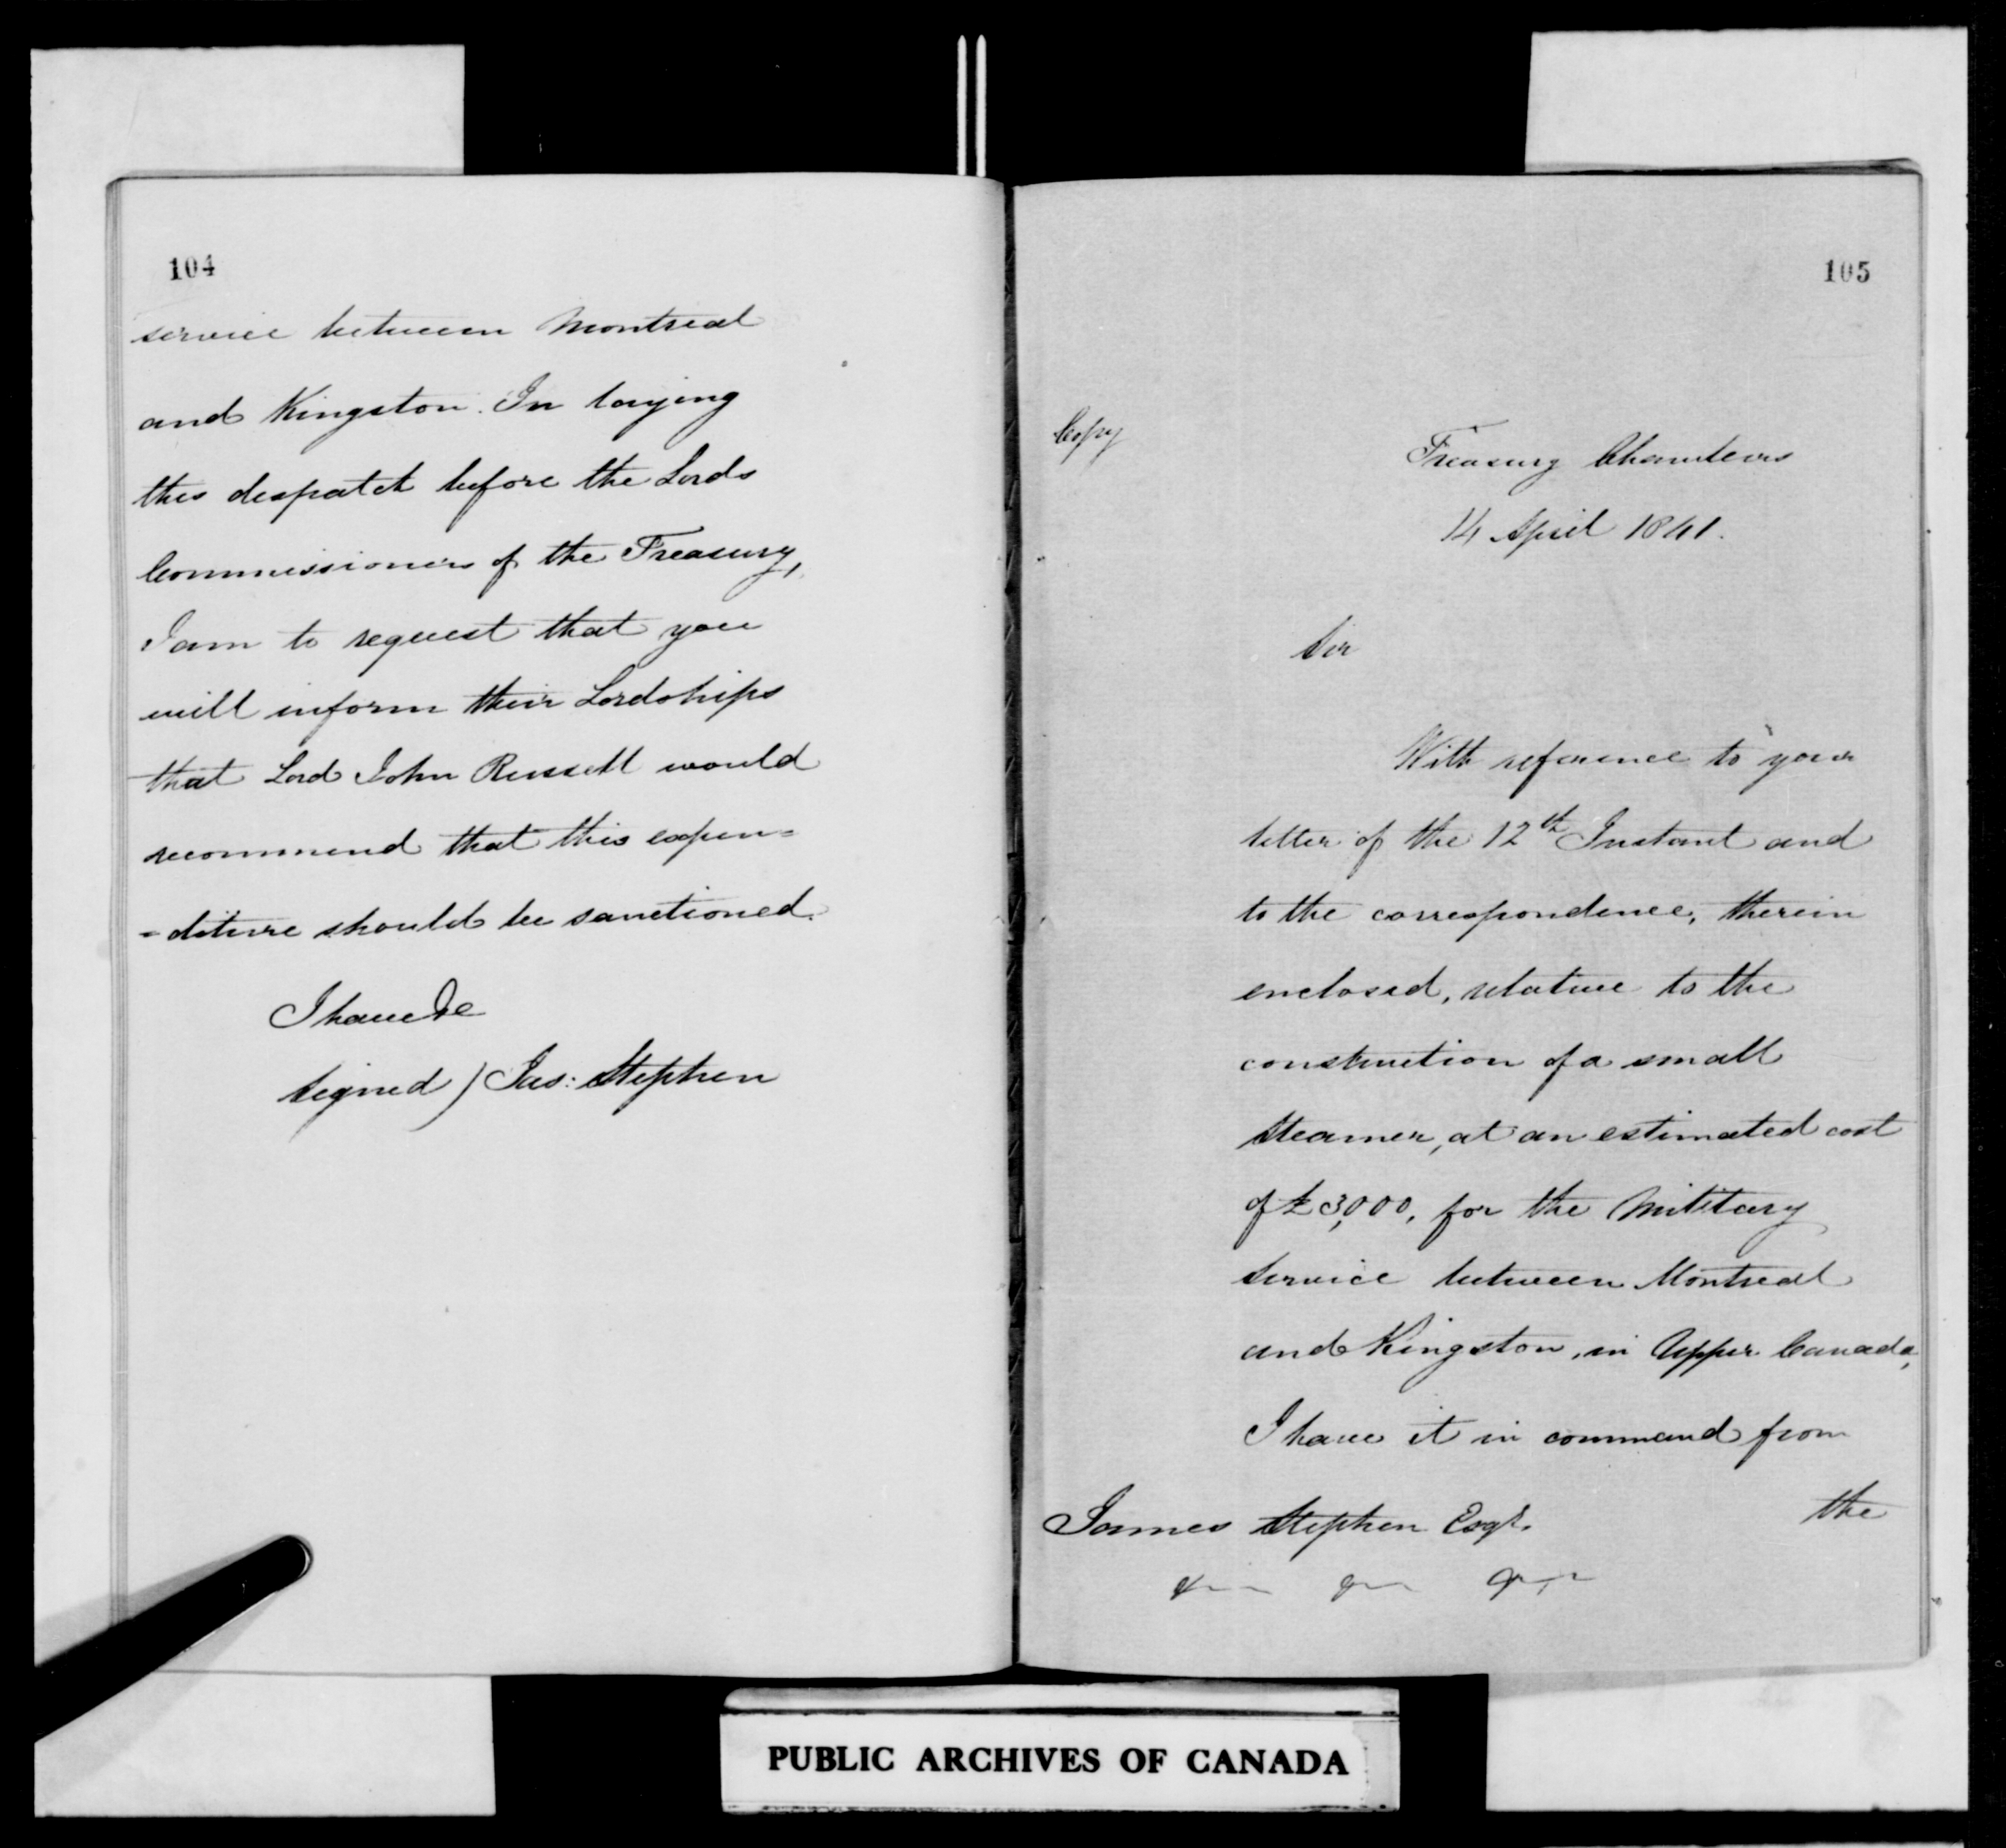 104
service between Montreal
and Kingston. In laying
this despatch before the Lords
Commissioners of the Treasury,
I am to request that you
will inform their Lordships
that Lord John Russell would
recommend that this expen=
=diture should be sanctioned.
I have &c
signed) Jas: Stephen
105
Copy
Treasury Chambers
14 April 1841.
Sir
With reference to your
letter of the 12th Instant and
to the correspondence, therein
enclosed, relative to the
construction of a small
steamer, at an estimated cost
of £3,000, for the Military
Service between Montreal
and Kingston, in Upper Canada,
I have it in command from
the
James Stephen Esqr.
&c &c &c
PUBLIC ARCHIVES OF CANADA